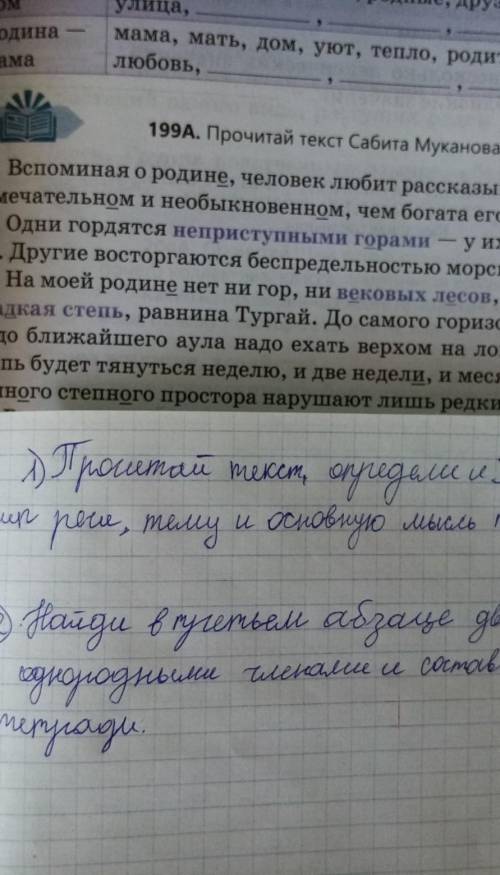 улица,
одина — мама, мать, дом, уют, тепло, родит
ама любовь,
199А. Прочитай текст Сабита Муканова
Вспоминая о родине, человек любит рассказы
мечательном и необыкновенном, чем богата его
Одни гордятся неприступными горами — у их
. Другие восторгаются беспредельностью морск
На моей родине нет ни гор, ни вековых лесов,
адкая степь, равнина Тургай. До самого горизо
до ближайшего аула надо ехать верхом на ло
пь будет тянуться неделю, и две недели, и меся
ного степного простора нарушают лишь редки
1) Прочитай текст, определи и
ип речи, тему и основную мысль
2) Найди в третьем абзаце
однородными членами и состав
тетради.